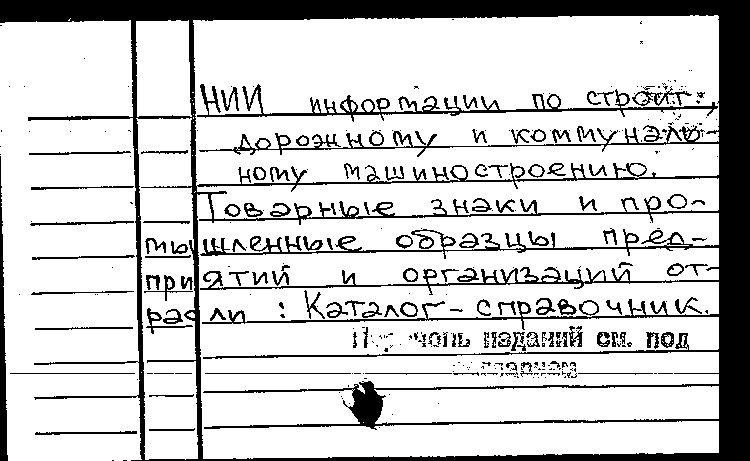 НИИ информации по строит.,
дорожному и коммуналь-
ному машиностроению.
Товарные знаки и про-
мышленные образцы пред-
приятий и организаций от-
расли : Каталог-справочник.
Перечень изданий см. под